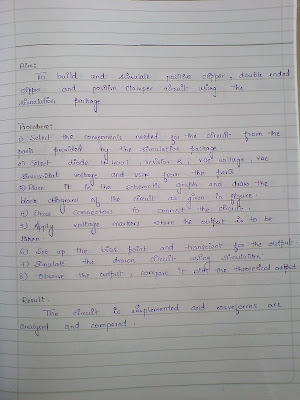 Aim:
To build and simulate positive clipper, double ended
clipper and positive clamper circuit using the
simulation package.
Procedure:
1) Select the components needed for the circuit from the
parts provided by the simulation package
2) Select diode IN4001, resistor R, VDC voltage, VAC
sinusoidal voltage and from the parts
3) Place it in the schematic graph and draw the
block diagram of the circuit as given in figure.
4) Draw connectors to connect the circuit.
5) Apply voltage markers where the output is to be
taken
6) Set up the bias point and transient for the output
7) Simulate the drawn circuit using simulation
8) Observe the output, compare it with the theoretical output
Result:
The circuit is implemented and waveforms are
analysed and compared.